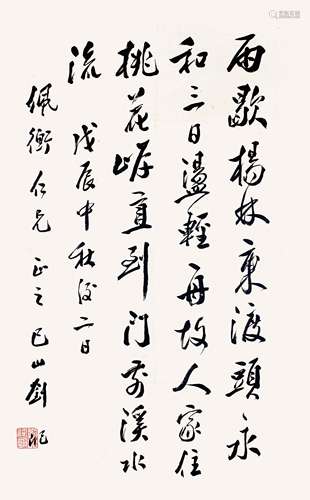 雨歇楊林東渡頭永
和三日盪輕舟故人家住
桃花崕直到門前溪水
流 戊辰中秋後二日
佩衡仁兄 正之 巴山劉